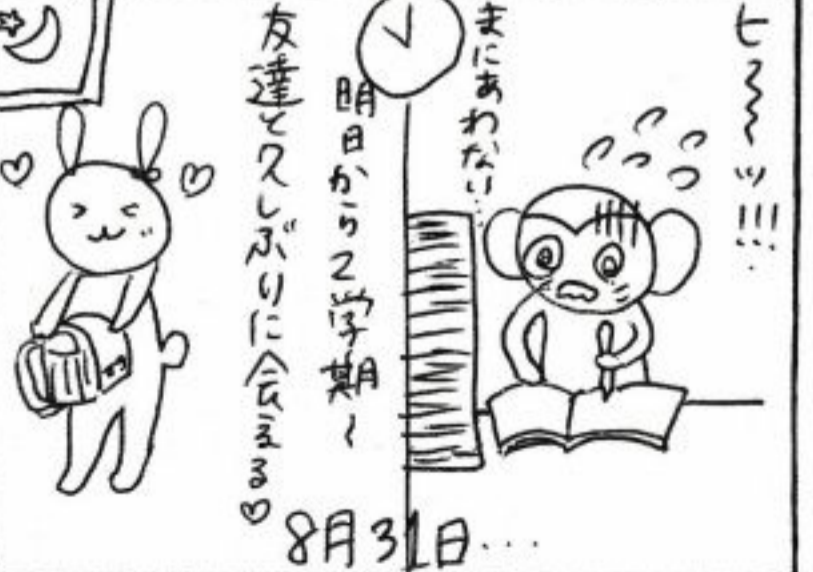 ヒ〜〜ッ!!!
まにあわない…
明日から2学期〜
友達と久しぶりに会える♡
8月31日…